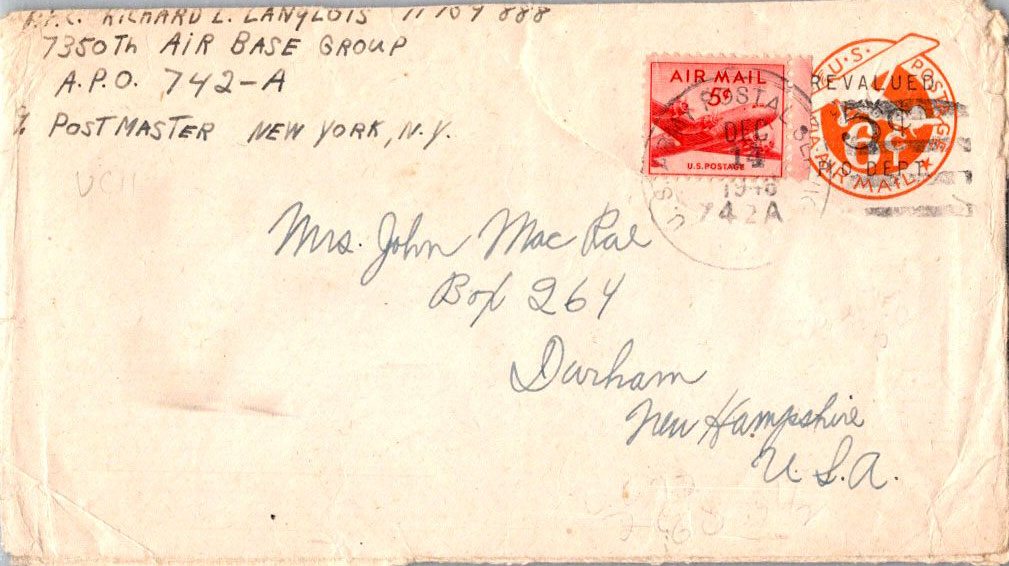 P.F.C. RICHARD L. LANGLOIS 11 109 888
7350Th AIR BASE GROUP
A.P.O. 742-A
% POSTMASTER NEW YORK, N.Y.
AIR MAIL
5¢
U.S. POSTAGE
U.S. ARMY POSTAL SERVICE
DEC
14
1948
742A
U.S. POSTAGE
VIA AIR MAIL
6c
REVALUED
5¢
P.O. DEPT.
Mrs. John Mac Rae
Box 264
Durham
New Hampshire
U.S.A.